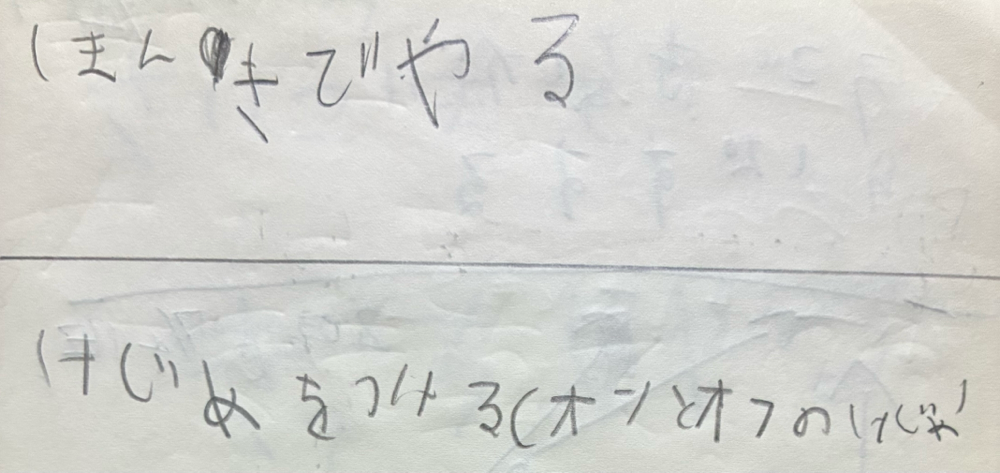 ほんきでやる
けじめをつける(オンとオフのけじめ)